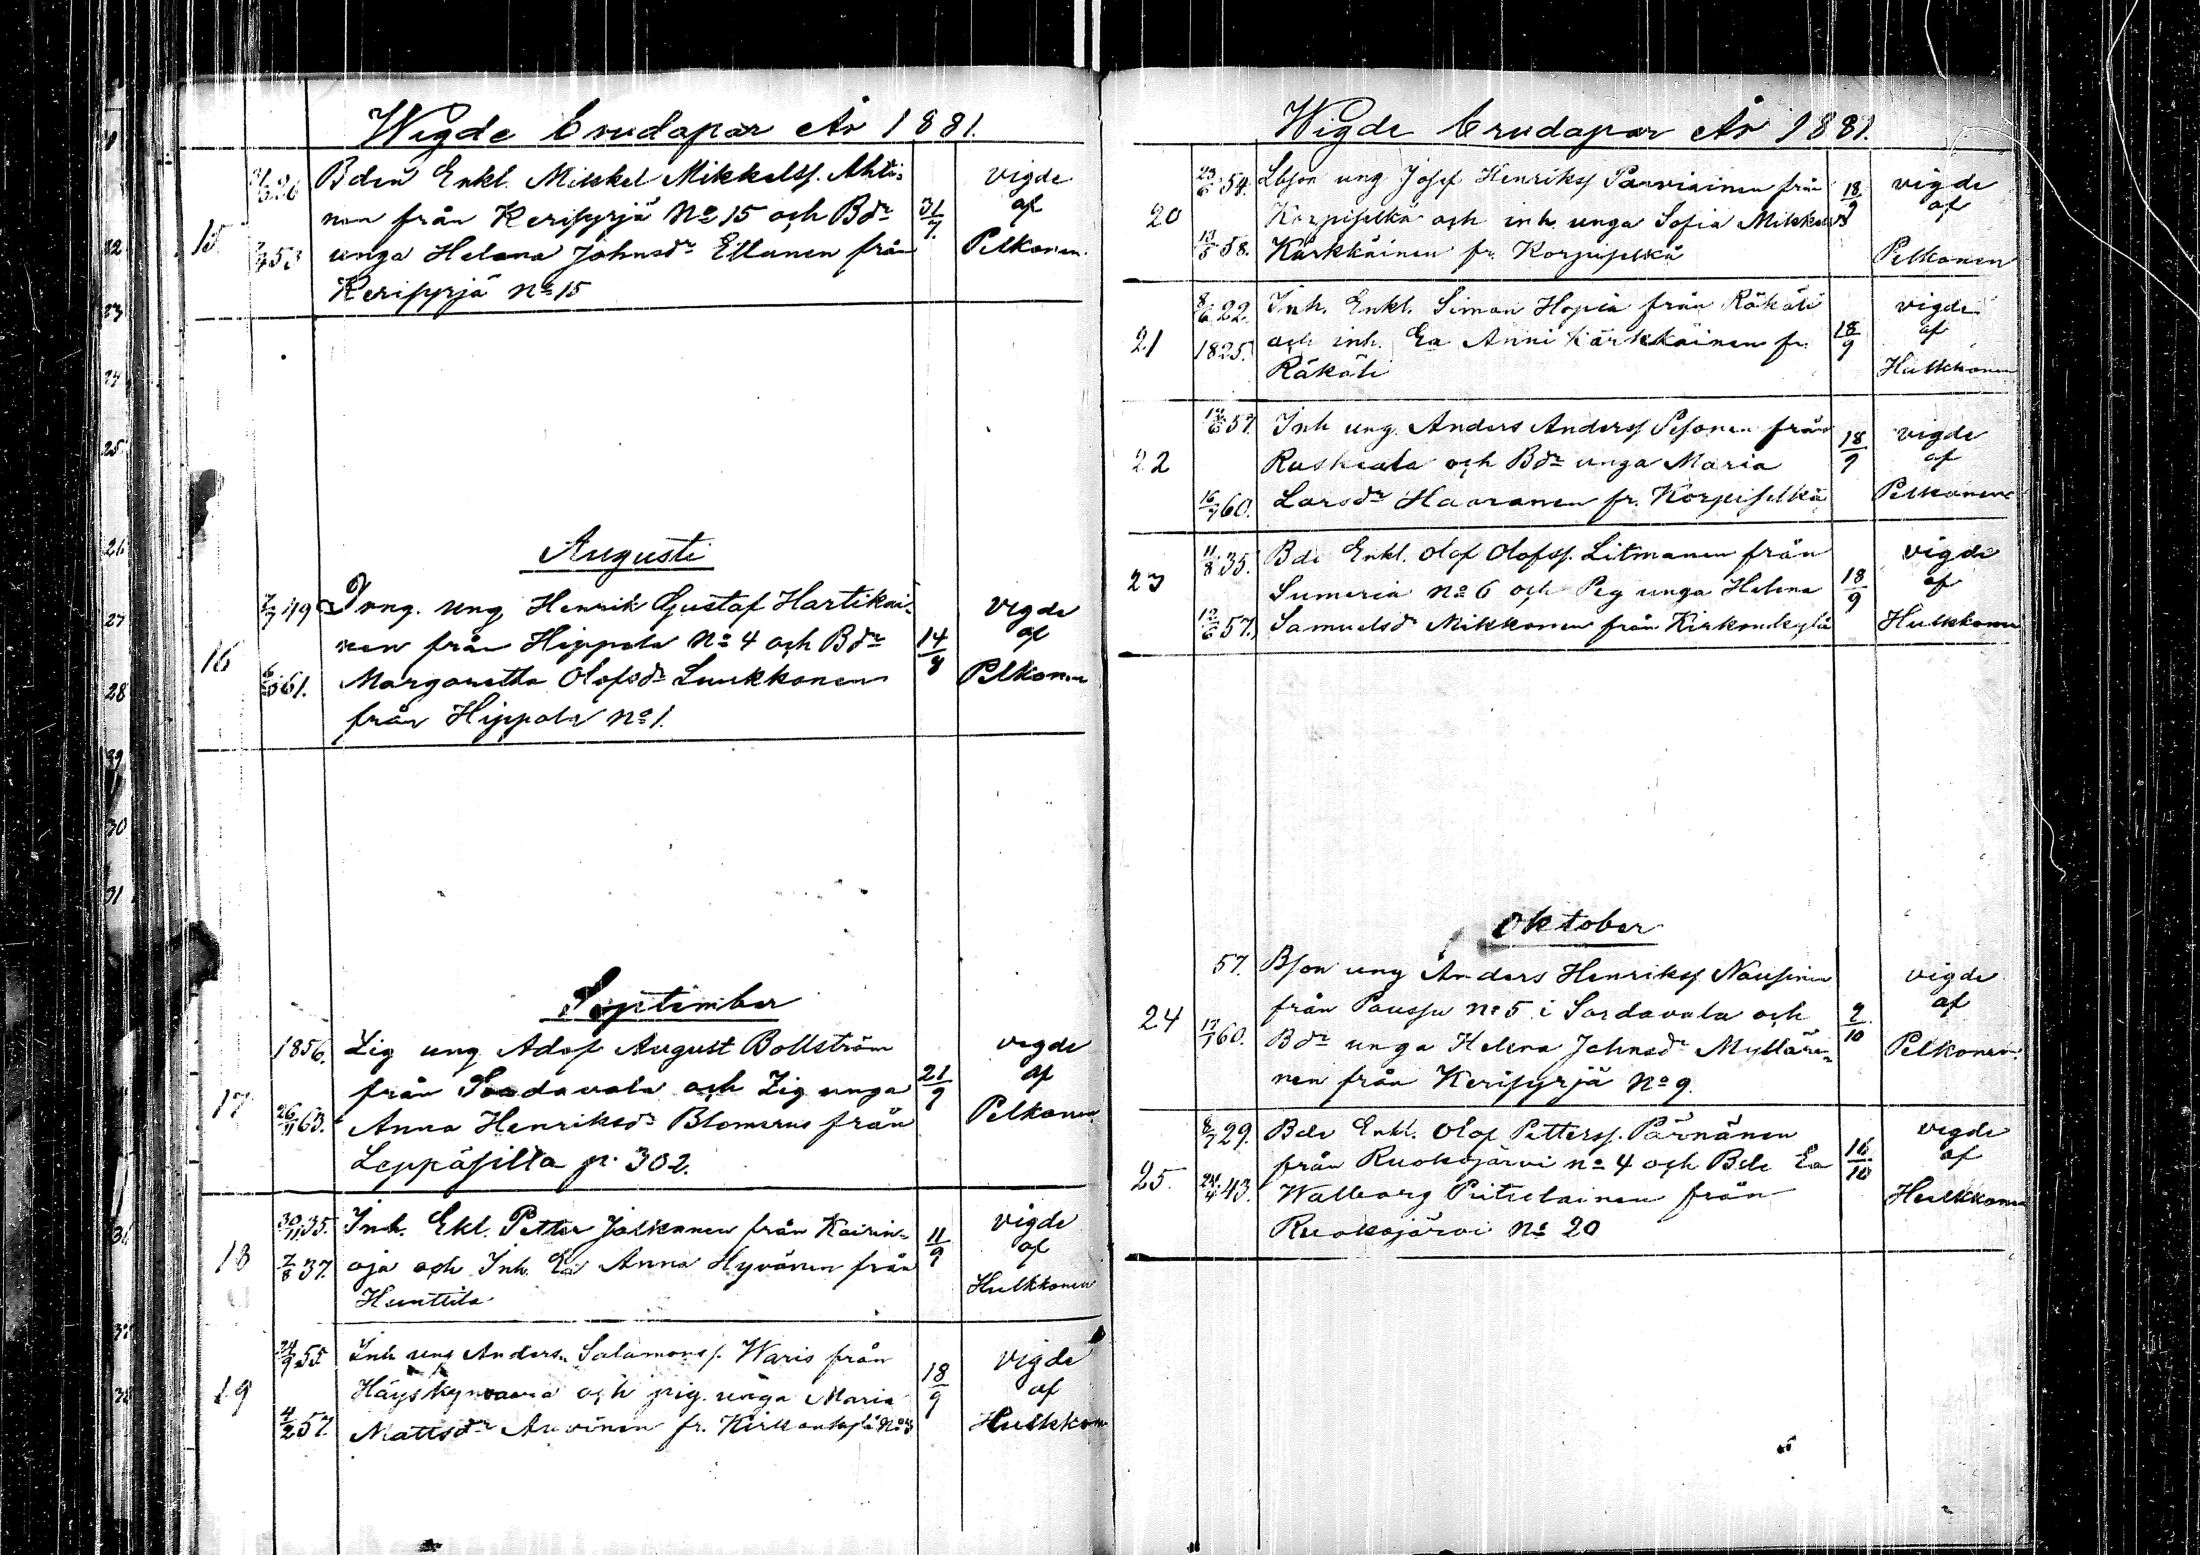 Wigde brudapar År 1881.
15
53
Bden Enkl. Mikkel Mikkelss. Ahti-
nen från Kerisyrjä No 15 och Bdr
unga Helena Johnsdr Ellanen från
Kerisyrjä No 15
31/7
vigde
af
Pelkonen.
Augusti
16
7/7 49
61.
ung Henrik Gustaf Hartikai-
nen från Hippola No 4 och Bdr
Margaretha Olofsdr Luukkonen
från Hippola No 1.
14/8
vigde
af
Pelkonen
September
17
1856.
26/11 63.
Zig ung Adof August Bollström
från Sordavala och Zig unga
Anna Henriksdr Blomerus från
Leppäsilta p. 302.
21/9
vigde
af
Pelkonen.
18
30/11 35.
7/8 37.
Inh. Ekl. Petter Jalkanen från Kairin-
oja och Inh. Ea Anna Hyvönen från
Hunttila
11/9
vigde
af
Hulkkonen
19
24/9 55
4/2 57.
Inh ung Anders Salamonss. Waris från
Häyskynvaara och pig. unga Maria
Mattsdr Auvinen fr. Kirkonkylä No
18/9
vigde
af
Hulkkonen
Wigde brudapar År 1881.
20
23/6 54.
13/5 58.
Lbson ung Josef Henrikss Parviainen från
Korpiselkä och inh. unga Sofia Mikkelsdr
Kärkkäinen fr. Korpiselkä
18/9
vigde
af
Pelkonen
21
8/6 22.
1825.
Inh. Enkl. Simon Hopia från Räkäli
och inh. Ea Anni Kärkkäinen fr.
Räkäli
18/9
vigde
af
Hulkkonen
22
57.
16/7 60.
Inh ung. Anders Anderss Pesonen från
Ruskeala och Bdr unga Maria
Larsdr Haaranen fr. Korpiselkä
18/9
vigde
af
Pelkonen
23
11/8 35.
12/6 57.
Bde Enkl. Olof Olofss. Litmanen från
Sumeria No 6 och Pig unga Helena
Samuelsdr Mikkonen från Kirkonkylä
18/9
vigde
af
Hulkkonen
Oktober
24
57.
17/7 60.
Bson ung Anders Henrikss Nousinen
från Paussu No 5 i Sordavala och
Bdr unga Helena Johnsdr Mylläri-
nen från Kerisyrjä No 9.
2/10
vigde
af
Pelkonen.
25.
8/7 29.
24/4 43.
Bde Enkl. Olof Petterss. Pärnänen
från Ruokojärvi No 4 och Bde Ea
Walborg Piitulainen från
Ruokojärvi No 20
16/10
vigde
af
Hulkkonen